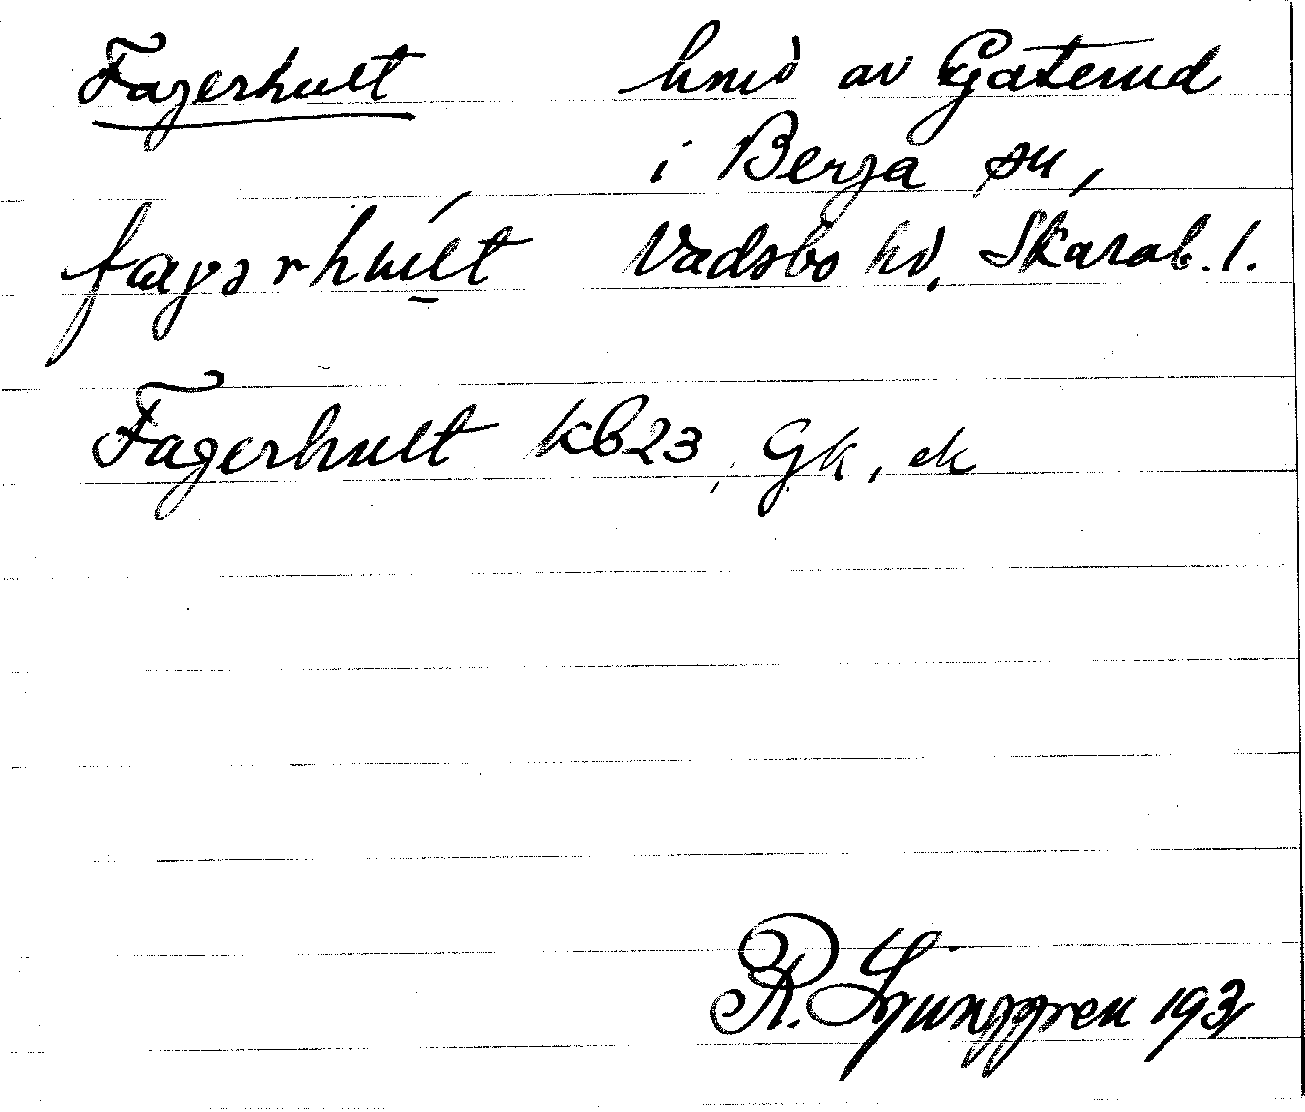 Fagerhult hmd av Gaterud
i Berga sn,
fagərhult Vadsbo hd, Skarab. l.
Fagerhult kb23, Gk, ek
R. Ljunggren 1931